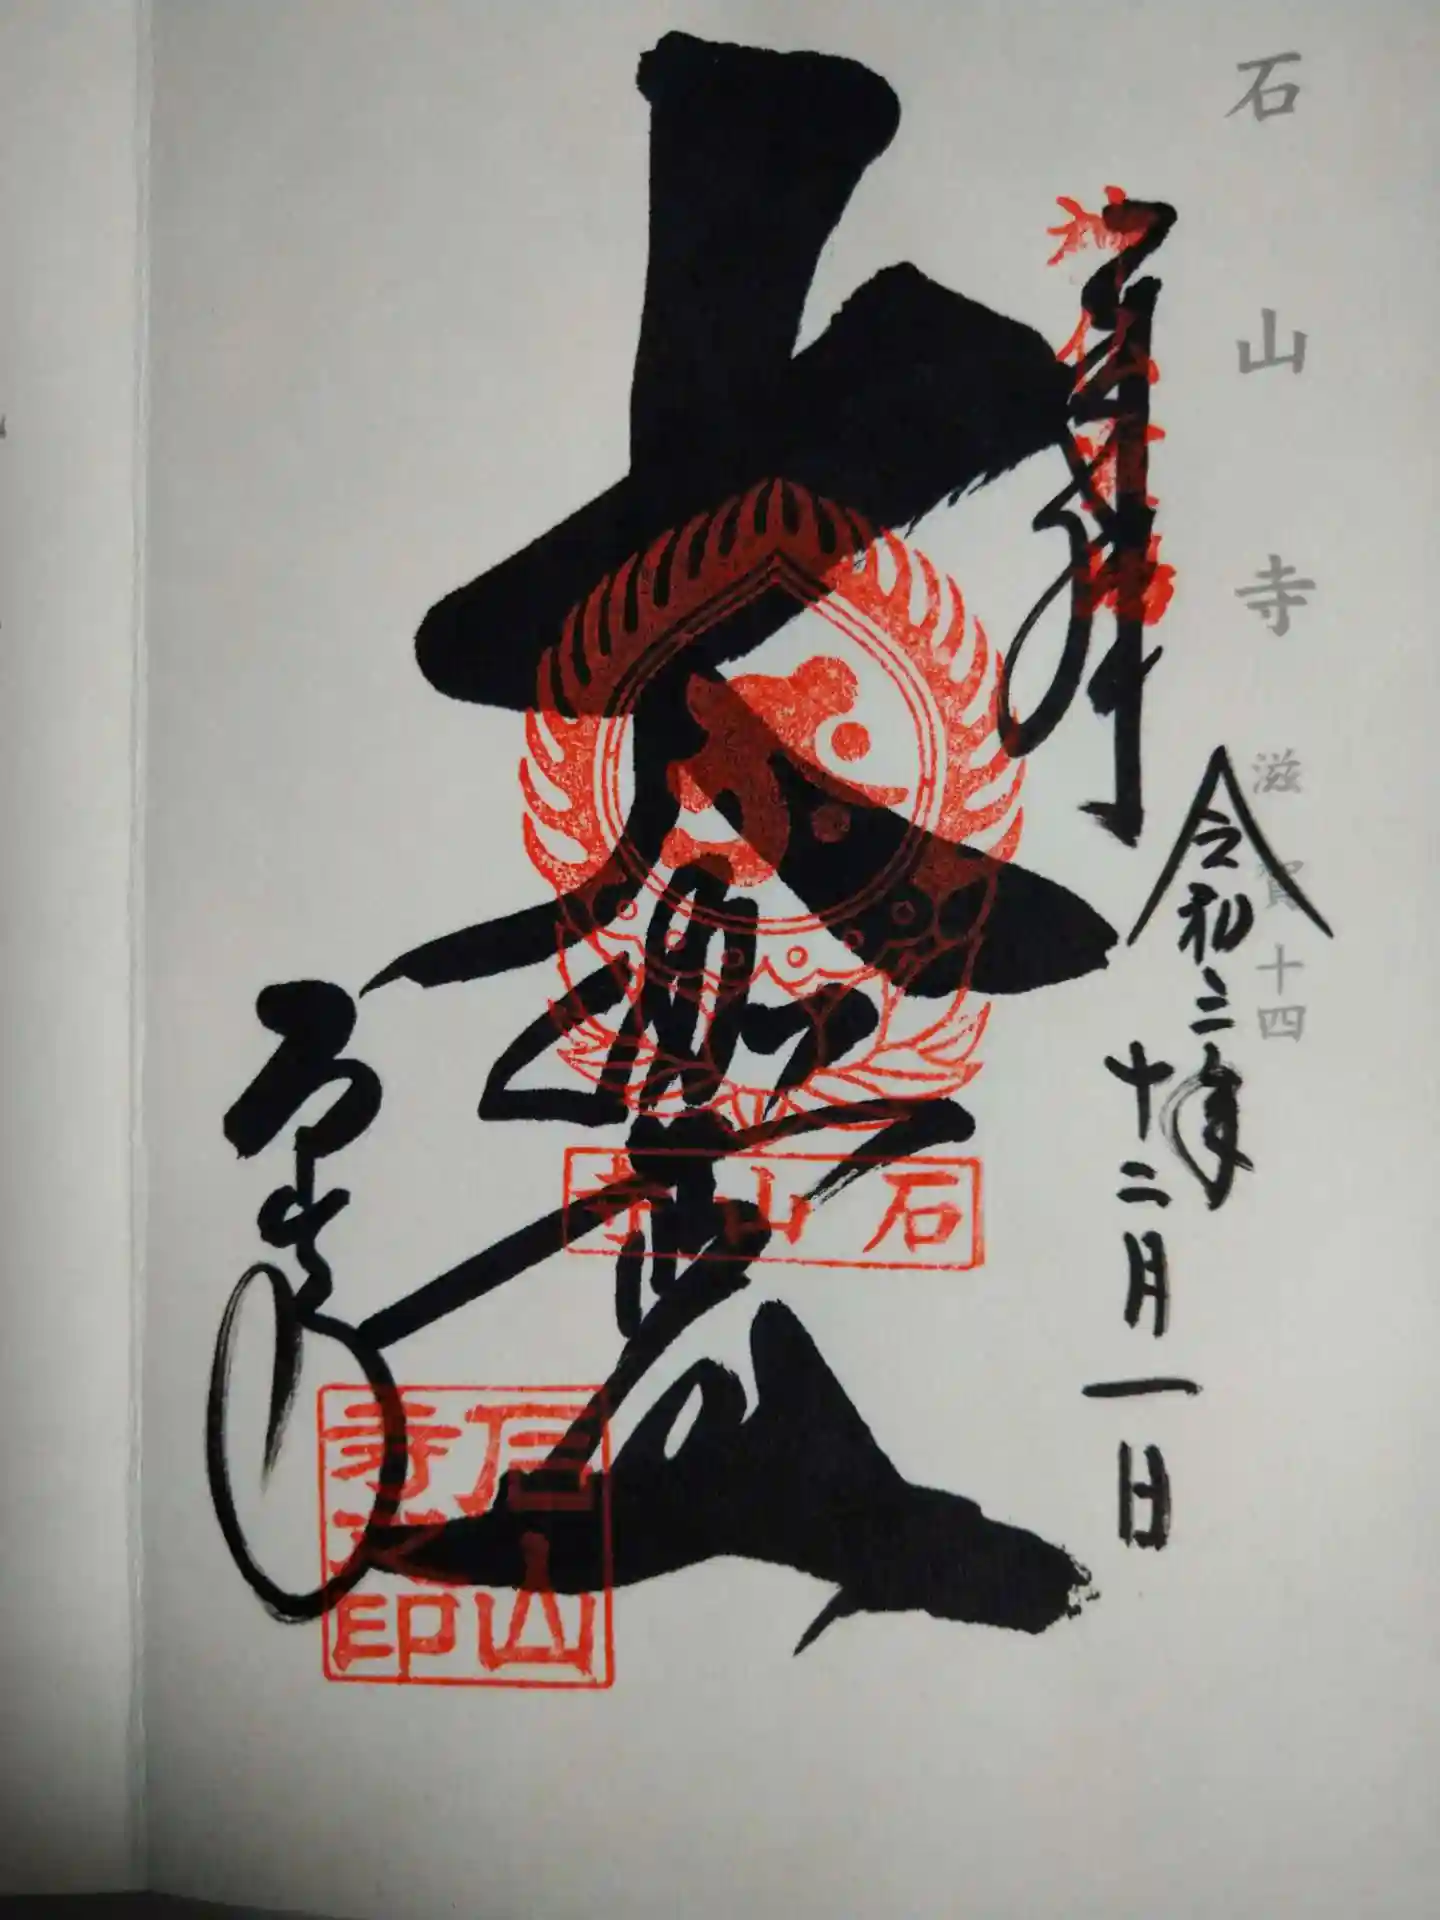 石山寺 滋賀十四
奉拝
神仏霊場
令和二年
十二月一日
大伽藍
石山寺
石山寺
石山寺之印